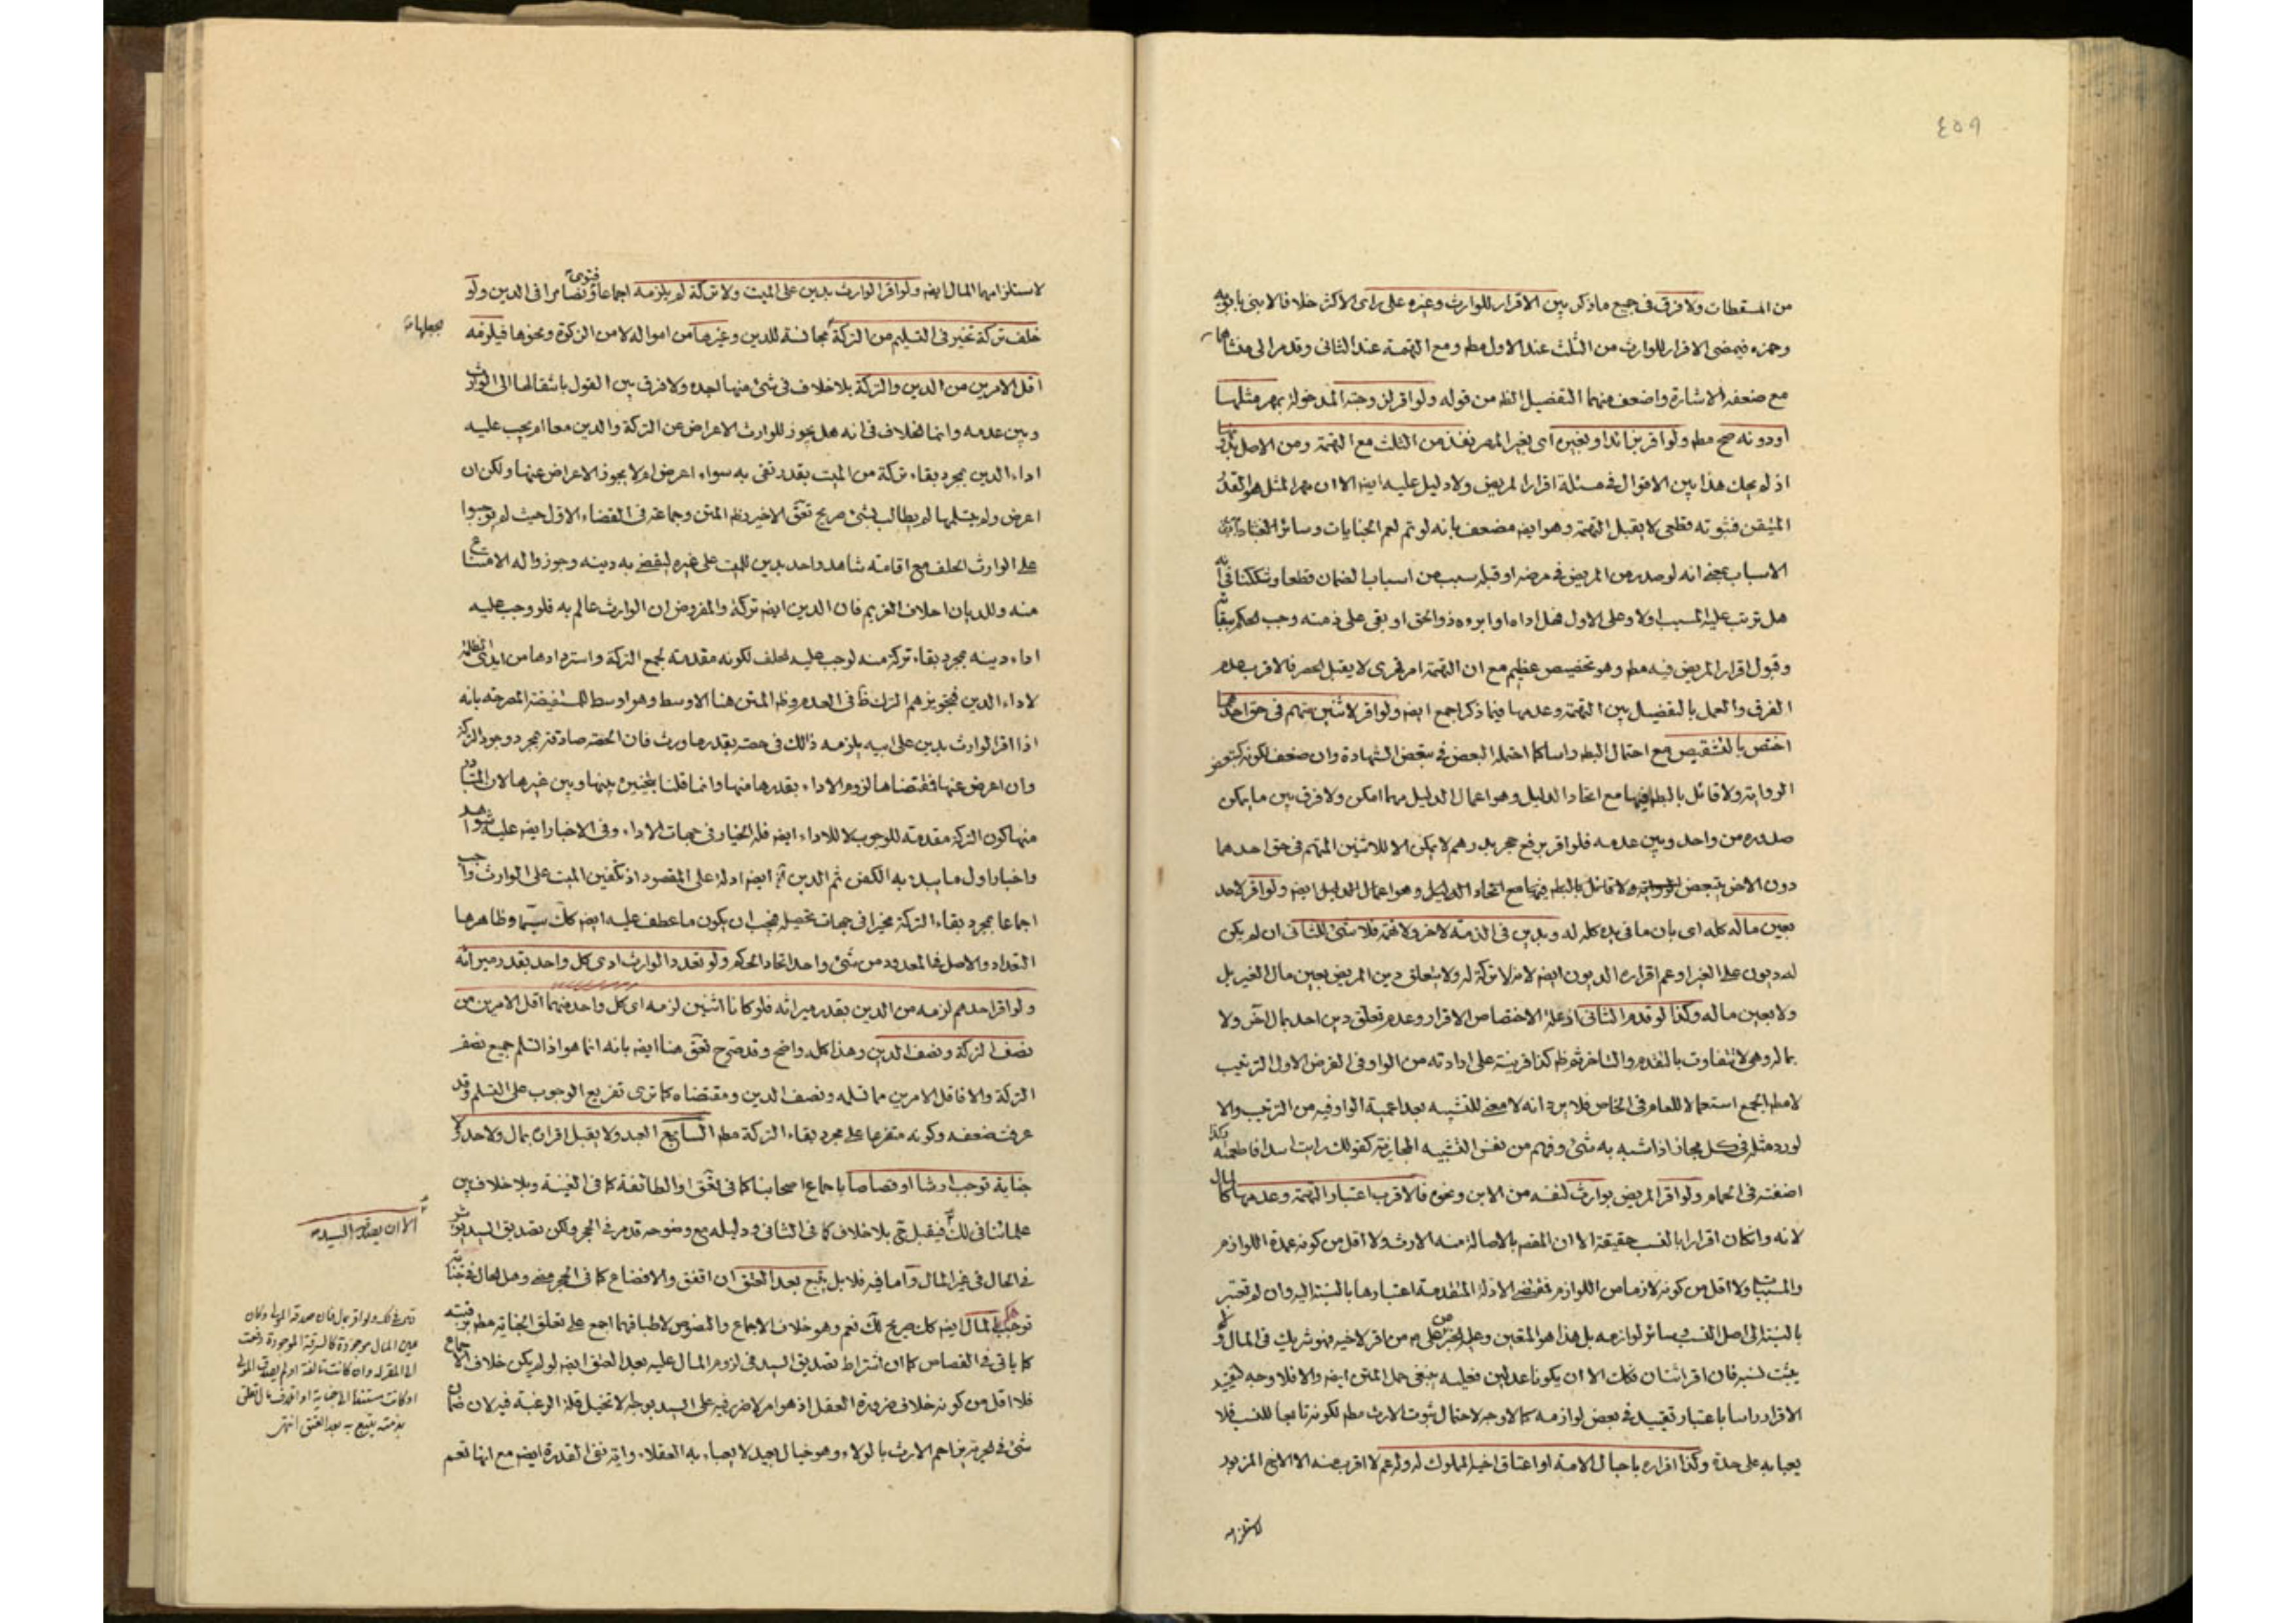 ٤٥٩
من المسقطات ولا فرق فى جميع ماذكر بين الاقرار للوارث وغيره على راى الاكثر خلافا لابنى بابويه
وحمزه فيمضى الاقرار للوارث من الثلث عند الاول مطم ومع التهمة عند الثانى وقد مر الى منشاها
مع ضعفه الاشارة واضعف منهما التفصيل الظه من قوله ولو اقر لزوجته المدخولة بمهر مثلها
او دونه صح مطم ولو اقر بزائد او بغيره اى بغير المهر نفذ من الثلث مع التهمة ومن الاصل بدونها
اذ لم يحك هذا بين الاقوال فى مسئلة اقرار المريض ولا دليل عليه ايضه الا ان مهر المثل هو القدر
المتيقن فثبوته قطعى لا يقبل التهمة وهو ايضه مضعف بانه لو تم لعم الجنايات وسائر
الاسباب بمعنى انه لو صدر من المريض فى مرضه او قبله سبب من اسباب الضمان قطعا وشككنا فى انه
هل ترتب عليه المسبب اولا وعلى الاول فهل اداه او ابروه ذو الحق او بقى على ذمته وجب الحكم ببقائه
وقبول اقرار المريض فيه مطم وهو تخصيص عظيم مع ان التهمة امر لا يقبل الحصر فالاقرب عدم
الفرق والعمل بالتفصيل بين التهمة وعدمها فيما ذكر اجمع ايضه ولو اقر لاثنين متهم فى حق احدهما
اختص بالتشقيص مع احتمال البطه راسا كما احتمله البعض فى تبعض الشهادة وان ضعف لكونه كتبعض
الرواية ولا قائل بالبطه فيها مع اتحاد الدليل وهو اعمال الدليل مهما امكن ولا فرق بين ما يمكن
صدوره من واحد وبين عدمه فلو اقر برفع حجر بدرهم لا يمكن الا للاثنين المتهم فى حق احدهما
دون الاخر يتبعض ولا قائل بالبطه فيها مع اتحاد الدليل وهو اعمال الدليل ايضه ولو اقر لاحد
بعين ماله كله اى بان ما فى يده كله له وبدين فى الذمة لاخر ولا تهمة فلا شئ للثانى ان لم يكن
له ديون على الغير او عم اقراره الديون ايضه لانه لا تركة له ولا يتعلق دين المريض بعين مال الغير بل
ولا بعين ماله وكذا لو قدم الثانى اذ علة الاختصاص الاقرار وعدم تعلق دين احد بمال اخر ولا
بماله وهى لا تتفاوت بالتقدم والتاخر ثم ظه كذا قرينة على ارادته من الواو فى الفرض الاول الترتيب
لا مطم الجمع استعمالا للعام فى الخاص فلا يرد انه لا معنى للتشبيه بعد اعمية الواو فيه من الترتيب والا
لورد مثله فى كل مجاز اذا شبه به شئ وفهم من نفس التشبيه المجازية كقولك رايت اسدا فاطعمته وكذا
اضفته فى الحمام ولو اقر المريض بوارث لنفسه من الابن ونحوه فالاقرب اعتبار التهمة وعدمها كالمال
لانه وان كان اقرارا بالنسب حقيقة الا ان المقصم بالاصالة منه الارث ولا اقل من كونه عمدة اللوازم
والمسببات ولا اقل من كونه لازما من اللوازم فمقتضى الادلة المتقدمة اعتبارها بالنسبة اليه وان لم تعتبر
بالنسبة الى اصل النسب وسائر لوازمه بل هذا هو المتعين وعليه الخبر من اقر لاخيه فهو شريك فى المال ولا
يثبت نسبه فان اقر اثنان فكك الا ان يكونا عدلين فعليه ينبغى حمل المتن ايضه والا فلا وجه لتقييد
الاقرار راسا باعتبار تقييده فى بعض لوازمه كما لا وجه لاحتمال ثبوت الارث مطم لكونه تابعا للنسب فلا
يعبا به على حدة وكذا اقراره باحبال الامة او اعتاق اخيه المملوك له ولد عم لا اقرب منه الا الاخ المزبور
لاستلزامه
لاستلزامهما المال ايضه ولو اقر الوارث بدين على الميت ولا تركة لم يلزمه اجماعا ونصا مرا فى الدين ولو
خلف تركة تخير فى التسليم من التركة مجانسة للدين وغيرها من امواله لا من الزكوة ونحوها فيلزمه
يجعلها
اقل الامرين من الدين والتركة بلا خلاف فى شئ منها اجده ولا فرق بين القول بانتقالها الى الوارث
وبين عدمه وانما الخلاف فى انه هل يجوز للوارث الاعراض عن التركة والدين معا ام يجب عليه
اداء الدين بمجرد بقاء تركة من الميت بقدر تفى به سواء اعرض ام لا يجوز الاعراض عنها ولكن ان
اعرض ولم يتسلمها لم يطالب بشئ صريح تعق الاخير وظه المتن وجماعة فى القضاء الاول حيث لم يوجبوا
على الوارث الحلف مع اقامته شاهد واحد بدين للميت على غيره ليقضى به دينه وجوزوا له الامتناع
منه وللديان احلاف الغريم فان الدين ايضه تركة والمفروض ان الوارث عالم به فلو وجب عليه
اداء دينه بمجرد بقاء تركة منه لوجب عليه الحلف لكونه مقدمة لجمع التركة واستردادها من ايدى الظلمة
لاداء الدين فتجويزهم الترك ظ فى العدم وظه المتن هنا الاوسط وهو اوسط للمستفيضة المصرحة بانه
اذا اقر الوارث بدين على ابيه يلزمه ذالك فى حصته بقدر ما ورث فان الحصة صادقة بمجرد وجود التركة
وان اعرض عنها فمقتضاها لزوم الاداء بقدرها منها وانما قلنا بتخيير بينها وبين غيرها لان المتبادر
منها كون التركة مقدمة للوجوب لا للاداء ايضه فله الخيار فى جهات الاداء وفى الاخبار ايضه عليه شواهد
واخبار اول ما يبدء به الكفن ثم الدين ايضه ادلة على المقصود اذ تكفين الميت على الوارث واجب
اجماعا بمجرد بقاء التركة مخيرا فى جهات تحصيله فيجب ان يكون ما عطف عليه ايضه كك سيما وظاهرها
التعداد والاصل فى المعدود من شئ واحد اتحاد الحكم ولو تعدد الوارث ادى كل واحد بقدر ميراثه
ولو اقر احدهم لزمه من الدين بقدر ميراثه فلو كانا اثنين لزمه اى كل واحد منهما اقل الامرين من
نصف التركة ونصف الدين وهذا كله واضح وقد صرح تعق هنا ايضه بانه انما هو اذا تسلم جميع نصف
التركة والا فاقل الامرين مما تسلمه ونصف الدين ومقتضاه كما ترى تفريع الوجوب على التسلم وقد
عرفت ضعفه وكونه متفرعا على مجرد بقاء التركة مطم السابع العبد ولا يقبل اقراره بمال ولا حد ولا
جناية توجب ارشا او قصاصا باجماع اصحابنا كما فى تعق او الطائفة كما فى الغنية وبلا خلاف بين
علمائنا فى لك فيقبل بلا خلاف كما فى الثانى ودليله مع وضوحه قد مر فى الحجر ولكن تصديق السيد يؤثر
الا ان يصدقه السيد
فى الحال فى غير المال واما فيه فلا بل يتبع بعد العتق ان اتفق والا فضاع كما فى الحجر مضى وهل الحال فى جناية
توجب المال ايضه كك صريح لك نعم وهو خلاف الاجماع والنصوص لاطباقهما اجمع على تعلق الجناية مطم برقبته
كما ياتى فى القصاص كما ان اشتراط تصديق السيد فى لزوم المال عليه بعد العتق ايضه لو لم يكن خلاف الاجماع
فلا اقل من كونه خلاف ضرورة العقل اذ هو امر لا ضرر فيه على السيد بوجه لا تخيل قلة الرغبة فيه لان ضمان
شئ فى الحرية يزاحم الارث بالولاء وهو خيال بعيد لا يعباء به العقلاء واية نفى القدرة ايضه مع انها تعم
فى لك ولو اقر بمال فان صدقه المولى وكان
عين المال موجودة كالسرقة الموجودة دفعت
الى المقر له وان كانت تالفة او لم يصدقه المولى
او كانت مستندة الى جناية او اتلاف مال تعلق
بذمته يتبع به بعد العتق انتهى